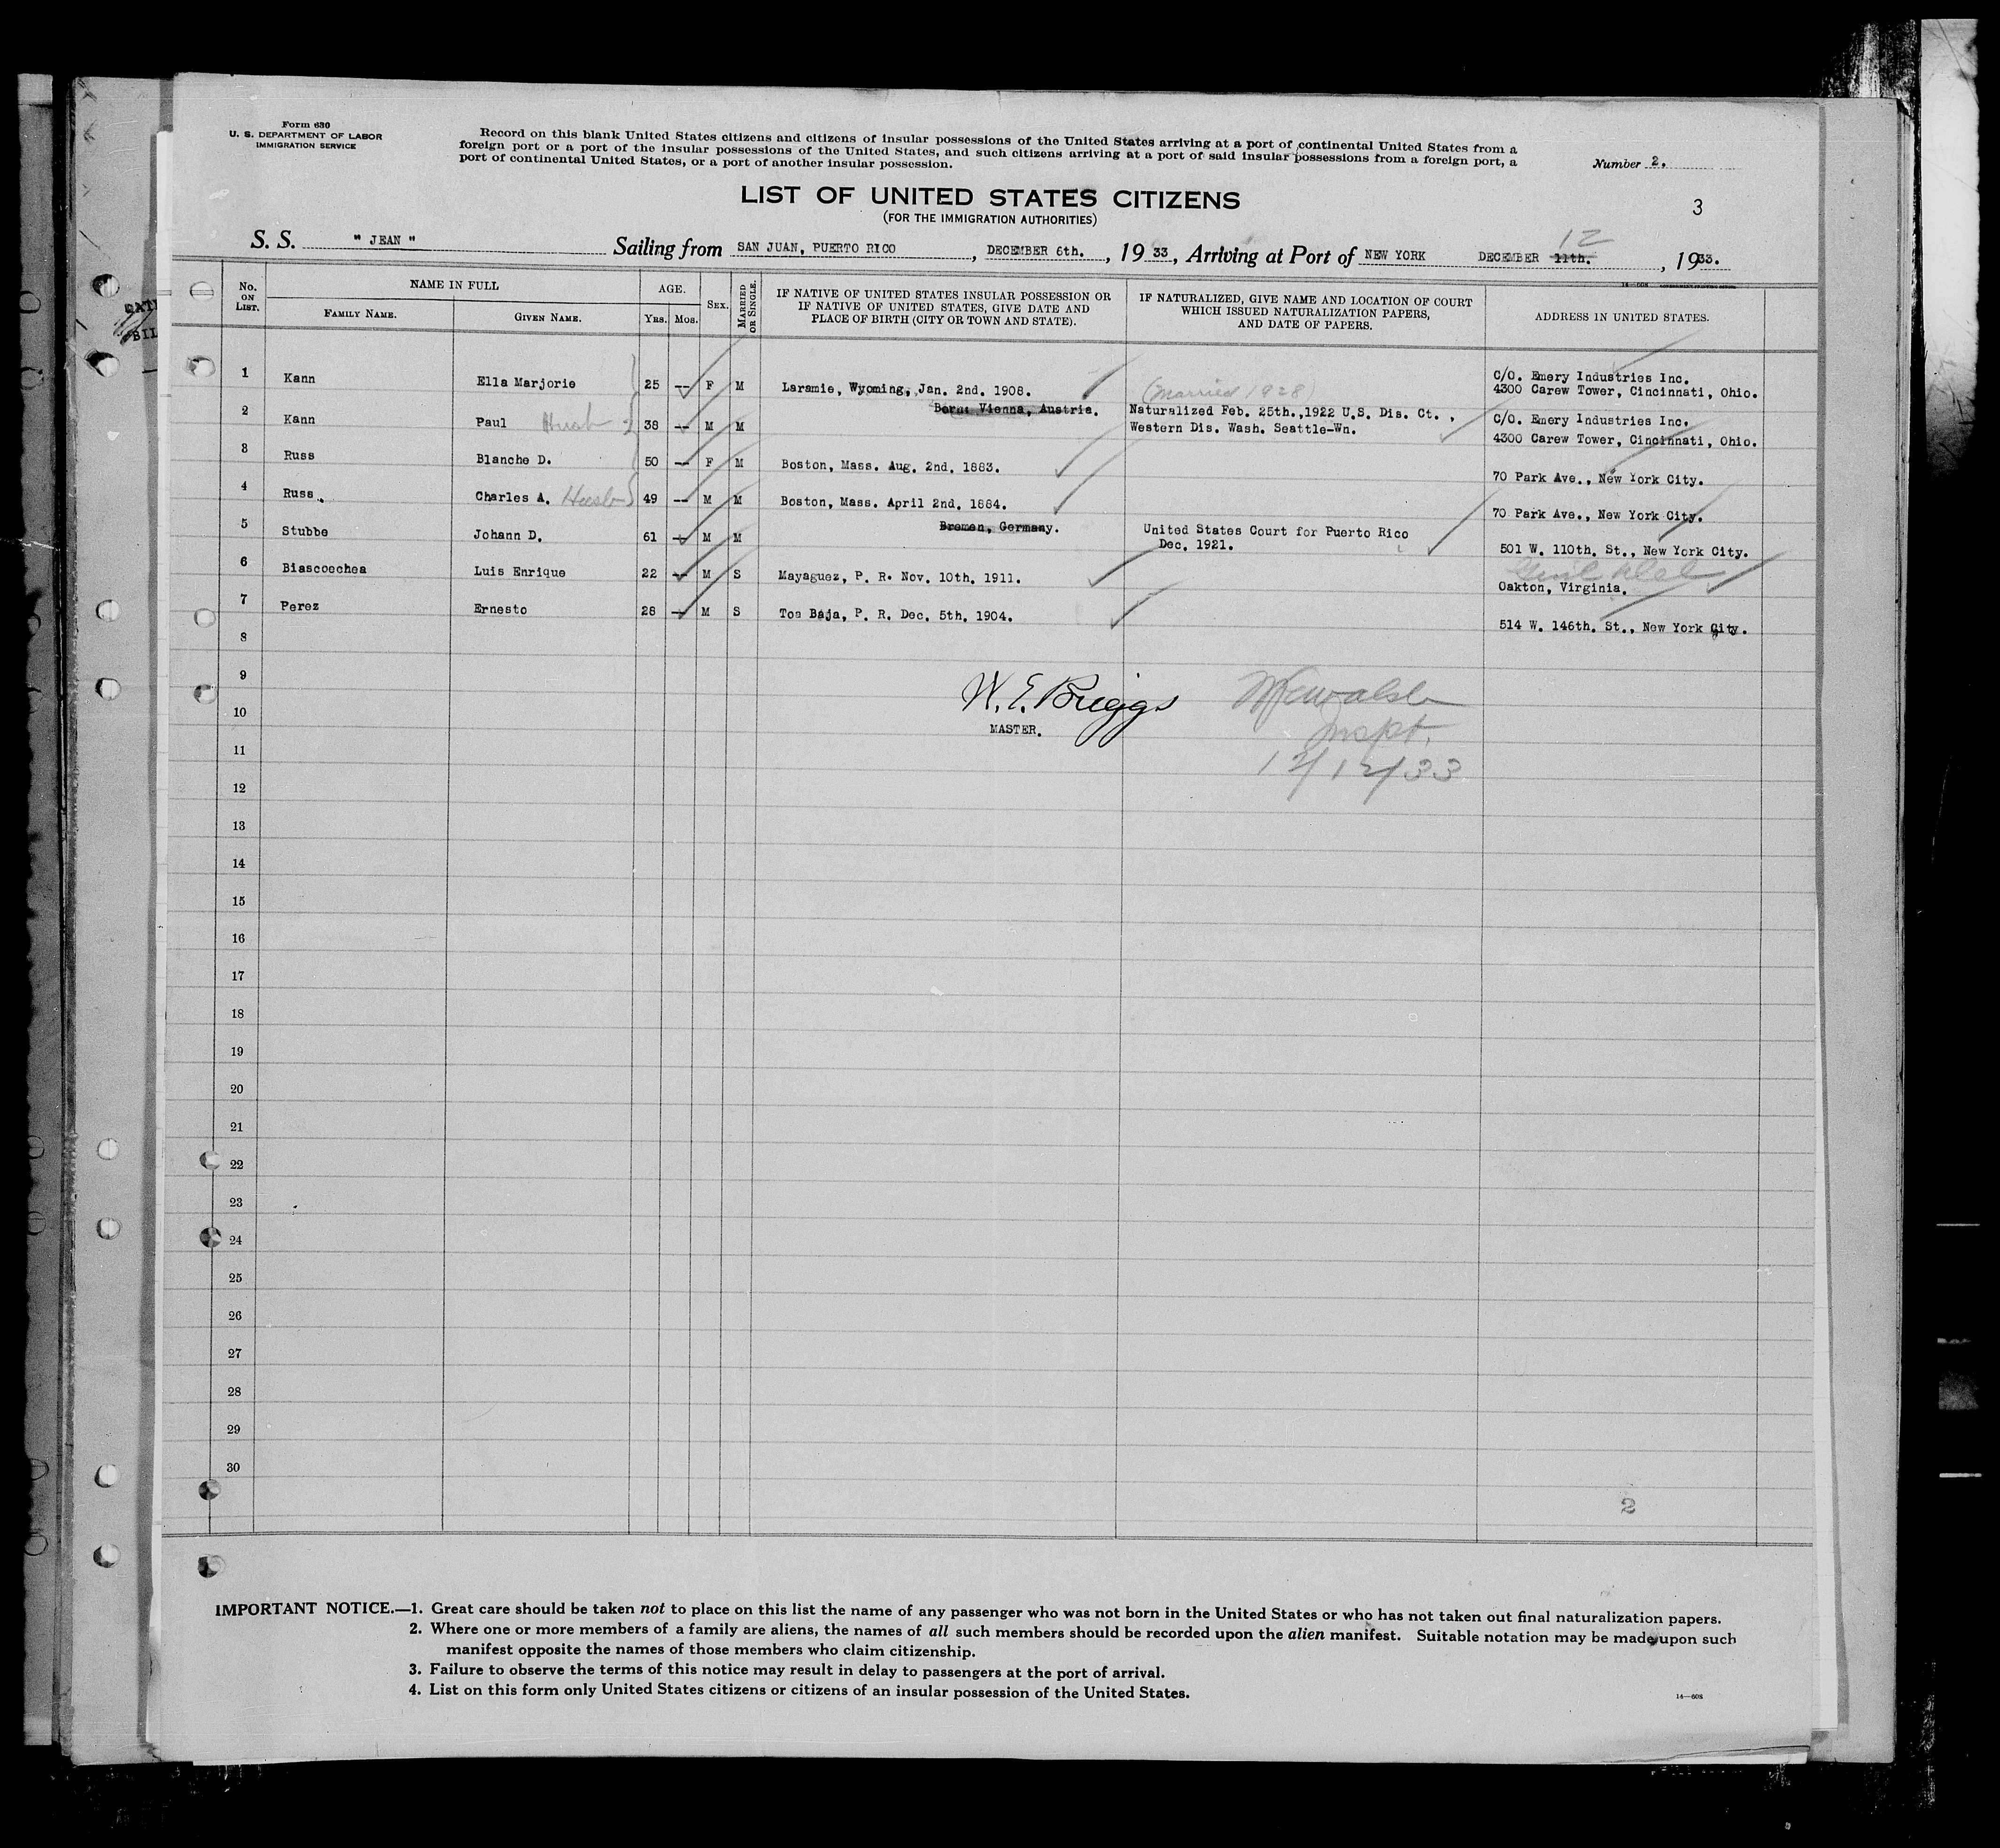 Form 630
U. S. DEPARTMENT OF LABOR
IMMIGRATION SERVICE
Record on this blank United States citizens and citizens of insular possessions of the United States arriving at a port of continental United States from a
foreign port or a port of the insular possessions of the United States, and such citizens arriving at a port of said insular possessions from a foreign port, a
port of continental United States, or a port of another insular possession.
Number 2.
3
LIST OF UNITED STATES CITIZENS
(FOR THE IMMIGRATION AUTHORITIES)
12
S. S. " JEAN " Sailing from SAN JUAN, PUERTO RICO, DECEMBER 6th., 1933, Arriving at Port of NEW YORK DECEMBER 11th., 1933.
No. ON LIST.
NAME IN FULL
FAMILY NAME.
GIVEN NAME.
AGE.
YRS.
MOS.
SEX.
MARRIED OR SINGLE.
IF NATIVE OF UNITED STATES INSULAR POSSESSION OR
IF NATIVE OF UNITED STATES, GIVE DATE AND
PLACE OF BIRTH (CITY OR TOWN AND STATE).
IF NATURALIZED, GIVE NAME AND LOCATION OF COURT
WHICH ISSUED NATURALIZATION PAPERS,
AND DATE OF PAPERS.
ADDRESS IN UNITED STATES.
1 Kann Ella Marjorie 25 -- F M Laramie, Wyoming, Jan. 2nd. 1908. (Married 1928) C/O. Emery Industries Inc.
4300 Carew Tower, Cincinnati, Ohio.
2 Kann Paul Husb 38 -- M M Born: Vienna, Austria. Naturalized Feb. 25th.,1922 U.S. Dis. Ct. ,
Western Dis. Wash. Seattle-Wn.
C/O. Emery Industries Inc.
4300 Carew Tower, Cincinnati, Ohio.
3 Russ Blanche D. 50 -- F M Boston, Mass. Aug. 2nd. 1883. 70 Park Ave., New York City.
4 Russ. Charles A. Husb 49 -- M M Boston, Mass. April 2nd. 1884. 70 Park Ave., New York City.
5 Stubbe Johann D. 61 -- M M Bremen, Germany. United States Court for Puerto Rico
Dec. 1921.
501 W. 110th. St., New York City.
6 Biascoechea Luis Enrique 22 -- M S Mayaguez, P. R. Nov. 10th. 1911.
Oakton, Virginia.
7 Perez Ernesto 28 -- M S Toa Baja, P. R. Dec. 5th. 1904. 514 W. 146th. St., New York City.
8
9
10
11
12
13
14
15
16
17
18
19
20
21
22
23
24
25
26
27
28
29
30
W. E. Briggs
MASTER.
Walsh
Inspt.
12/12/33
2
IMPORTANT NOTICE.—1. Great care should be taken not to place on this list the name of any passenger who was not born in the United States or who has not taken out final naturalization papers.
2. Where one or more members of a family are aliens, the names of all such members should be recorded upon the alien manifest. Suitable notation may be made upon such
manifest opposite the names of those members who claim citizenship.
3. Failure to observe the terms of this notice may result in delay to passengers at the port of arrival.
4. List on this form only United States citizens or citizens of an insular possession of the United States.
14—608